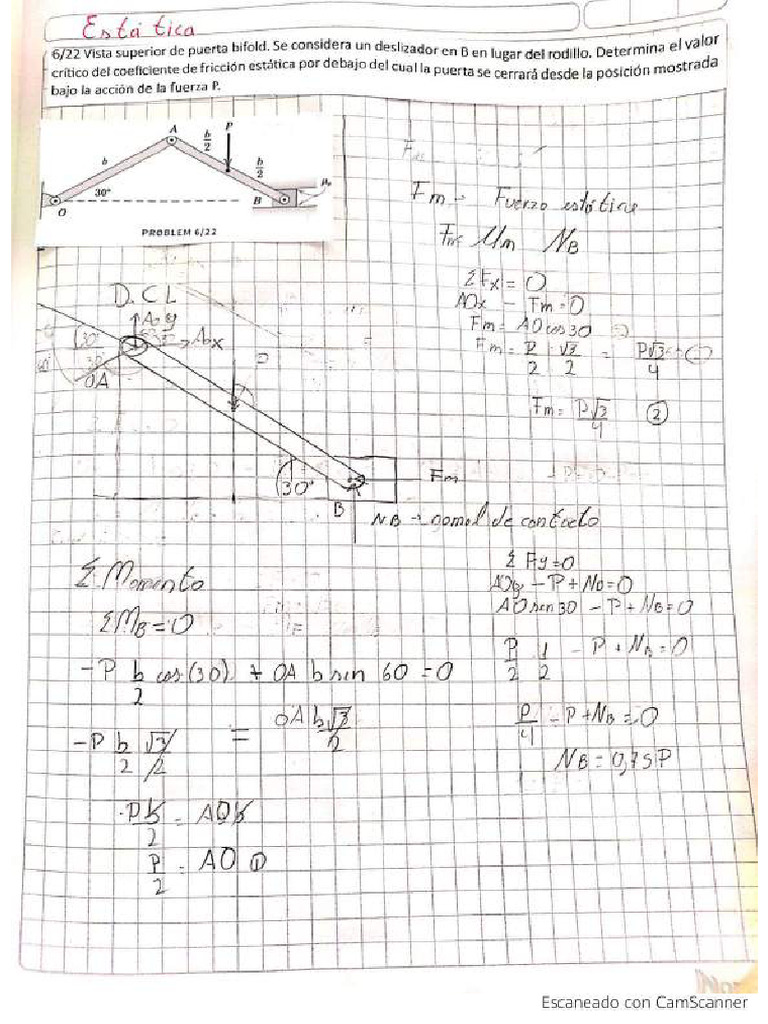 Estática
6/22 Vista superior de puerta bifold. Se considera un deslizador en B en lugar del rodillo. Determina el valor
crítico del coeficiente de fricción estática por debajo del cual la puerta se cerrará desde la posición mostrada
bajo la acción de la fuerza P.
A
b/2
P
b
b/2
30°
B
O
PROBLEM 6/22
Fm = Fuerza estática
Fm = Um NB
ΣFx = 0
AOx - Fm = 0
Fm = AO cos 30
Fm = P/2 √3/2 = P√3/4
Fm = P√3/4 ②
D.C.L
30
OA
Fm
30°
B
NB → gomal de contacto
ΣMomento
ΣMB = 0
- P b/2 cos (30) + OA b sin 60 = 0
- P b/2 √3/2 = OA b √3/2
Pb/2 = AOb
P/2 = AO ①
ΣFy=0
AOy - P + NB = 0
AO sen 30 - P + NB = 0
P/2 1/2 - P + NB = 0
P/4 - P + NB = 0
NB = 0,75P
Escaneado con CamScanner